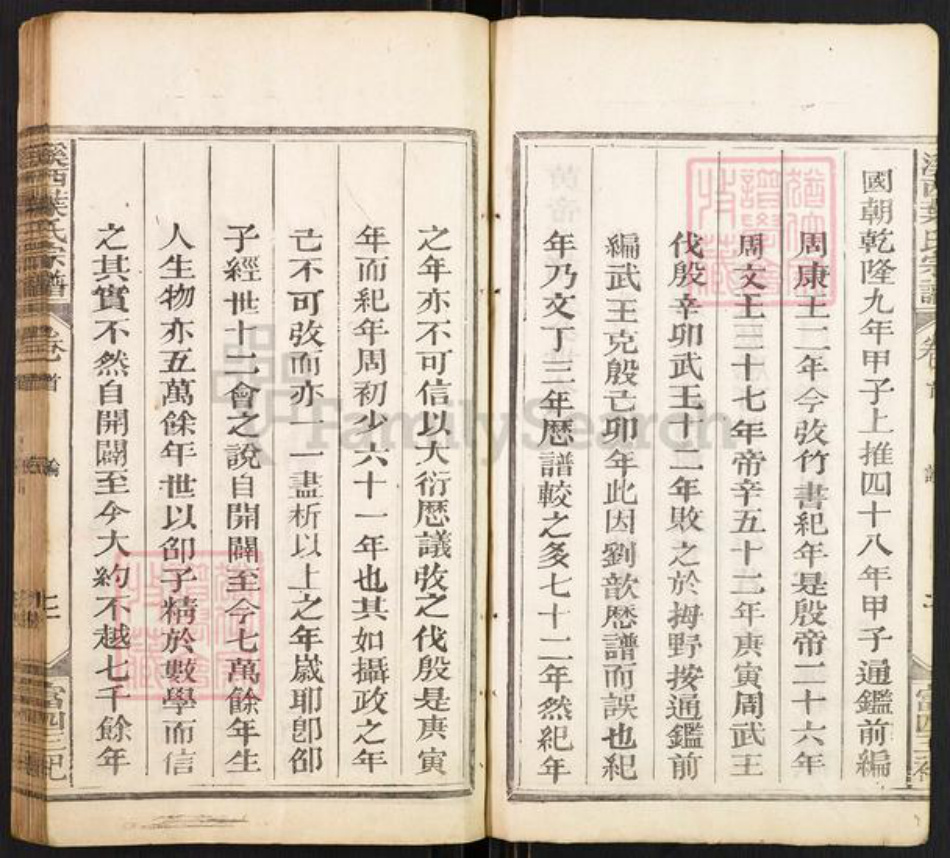 國朝乾隆九年甲子上推四十八年甲子通鑑前編
周康王二年今攷竹書紀年是殷帝二十六年
周文王三十七年帝辛五十二年庚寅周武王
伐殷辛卯武王十二年敗之於拇野按通鑑前
編武王克殷己卯年此因劉歆曆譜而誤也紀
年乃文丁三年曆譜較之多七十二年然紀年
之年亦不可信以大衍曆議攷之伐殷是庚寅
年而紀年周初少六十一年也其如攝政之年
已不可攷而亦一一盡析以上之年歲耶卽邵
子經世十二會之說自開闢至今七萬餘年生
人生物亦五萬餘年世以邵子精於數學而信
之其實不然自開闢至今大約不越七千餘年
溪西葉氏宗譜
卷首
論
FamilySearch